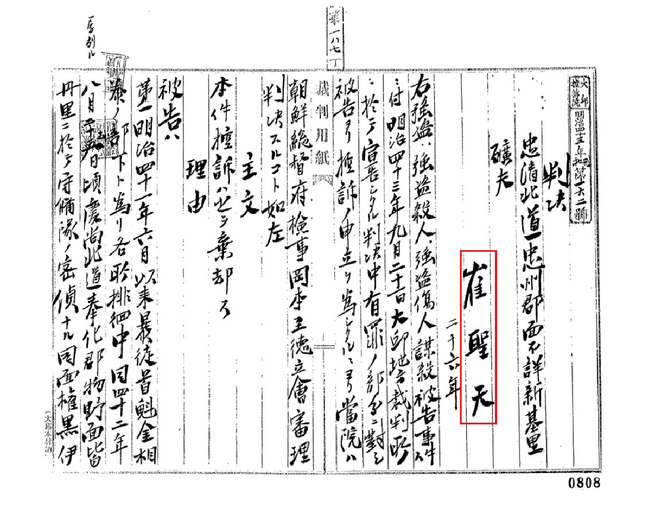 第一八七丁
判決
忠清北道忠州郡面不詳新基里
礦夫
崔聖天
二十六年
右強盗、強盗殺人、強盗傷人、謀殺被告事件ニ
付明治四十三年九月二十一日大邱地方裁判所
ニ於テ宣告シタル判決中有罪ノ部分ニ対シ
被告ヨリ控訴ノ申立ヲ為シタルニヨリ当院ハ
朝鮮総督府検事岡本正徳立會審理
判決スルコト如左
主文
本件控訴ハ之ヲ棄却ス
理由
被告ハ
第一明治四十一年六月以来暴徒首魁金相
泰ノ部下ト為リ各所排徊中同四十二年
八月 日頃慶尚北道奉化郡物野面皆
丹里ニ於テ守備隊ノ密偵ナル同面権黒伊
裁判用紙
0808